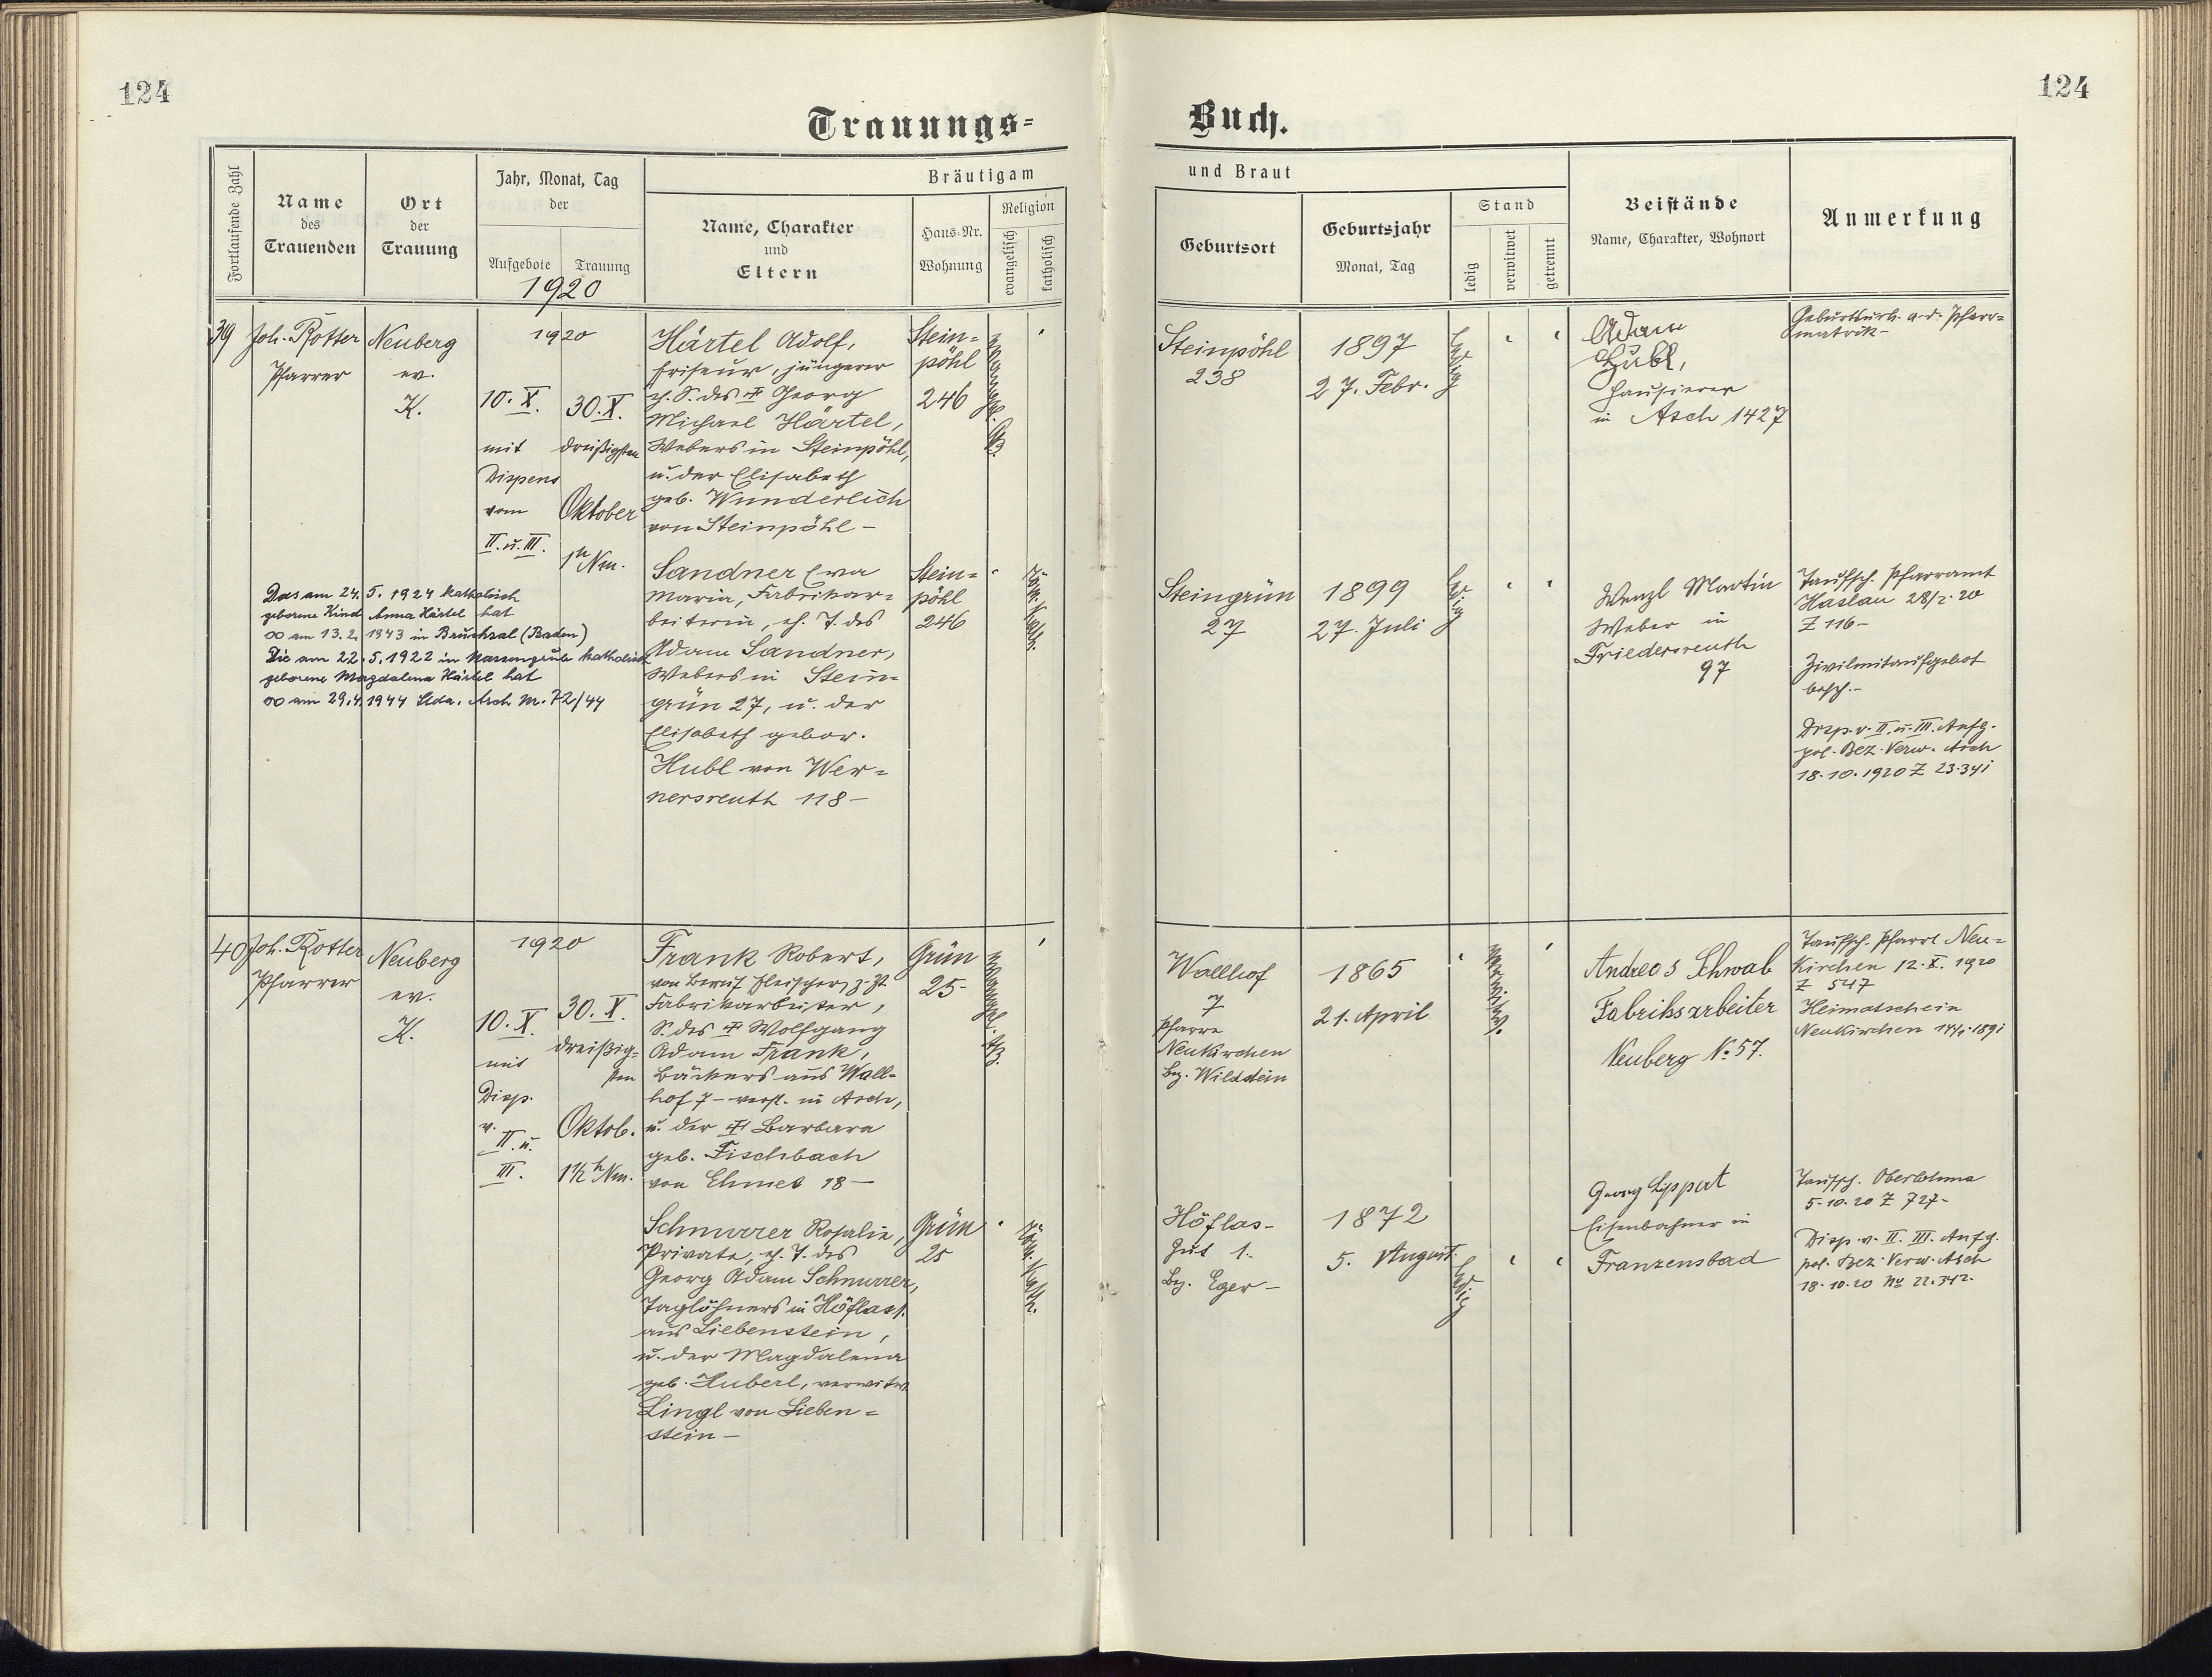 124
124
Trauungs=
Buch.
Fortlaufende Zahl
Name
des
Trauenden
Ort
der
Trauung
Jahr, Monat, Tag
der
Aufgebote
Trauung
1920
Bräutigam
Name, Charakter
und
Eltern
Haus-Nr.
Wohnung
Religion
evangelisch
katholisch
und Braut
Geburtsort
Geburtsjahr
Monat, Tag
Stand
ledig
verwitwet
getrennt
Beistände
Name, Charakter, Wohnort
Anmerkung
39
Joh. Rotter
Pfarrer
Neuberg
ev.
K.
1920
10. X.
mit
Dispens
vom
II. u. III.
30. X.
dreißigsten
Oktober
1h Nm.
Härtel Adolf,
Friseur, jüngerer
eh. S. des Georg
Michael Härtel,
Webers in Steinpöhl,
u. der Elisabeth
geb. Wunderlich
von Steinpöhl –
Stein=
pöhl
246
evangel. AB.
Steinpöhl
238
1897
27. Febr.
ledig
Adam
Hubl,
Hausierer
in Asch 1427
Geburtsurk. a. d. Pfarr=
matrik –
Sandner Eva
Maria, Fabrikar=
beiterin, eh. T. des
Adam Sandner,
Webers in Stein=
grün 27, u. der
Elisabeth gebor.
Hubl von Wer=
nersreuth 118 –
Stein=
pöhl
246
röm. kath.
Steingrün
27
1899
27. Juli
ledig
Wenzl Martin
Weber in
Friedersreuth
97
Taufsch. Pfarramt
Haslau 28/2. 20
Z 116 –
Zivilmitaufgebot
besch. –
Disp. v. II. u. III. Aufg.
pol. Bez. Verw. Asch
18. 10. 1920 Z 23.341
Das am 24. 5. 1924 katholisch
geborene Kind Anna Härtel hat
∞ am 13. 2. 1943 in Bruchsal (Baden)
Die am 22. 5. 1922 in katholisch
geborene Magdalena Härtel hat
∞ am 29. 4. 1944 Stda. Asch Nr. 72/44
40
Joh. Rotter
Pfarrer
Neuberg
ev.
K.
1920
10. X.
mit
Disp.
v.
II. u.
III.
30. X.
dreißig=
sten
Oktob.
1½ h Nm.
Frank Robert,
von Beruf Fleischer, z. Zt
Fabrikarbeiter,
S. des Wolfgang
Adam Frank,
Bäckers aus Wall=
hof 7 – verst. in Asch,
u. der Barbara
geb. Fischbach
von Ehmet 18 –
Grün
25
evangel. AB.
Wallhof
7
Pfarre
Neukirchen
Bez. Wildstein
1865
21. April
verwitw.
Andreas Schwab
Fabriksarbeiter
Neuberg No 57.
Taufsch. Pfarre Neu=
kirchen 12. X. 1920
Z 547
Heimatschein
Neukirchen 1891
Schnurrer Rosalie,
Private, eh. T. des
Georg Adam Schnurrer,
Taglöhners in Höflas 1.
aus Liebenstein,
u. der Magdalena
geb. Huberl, verwitw.
Lingl von Lieben=
stein –
Grün
25
röm. kath.
Höflas-
Gut 1.
Bez. Eger –
1872
5. August.
ledig
Georg Lippert
Eisenbahner in
Franzensbad
Taufsch. Oberlohma
5. 10. 20 Z 727 –
Disp. v. II. III. Aufg.
pol. Bez. Verw. Asch
18. 10. 20 No 22.342.